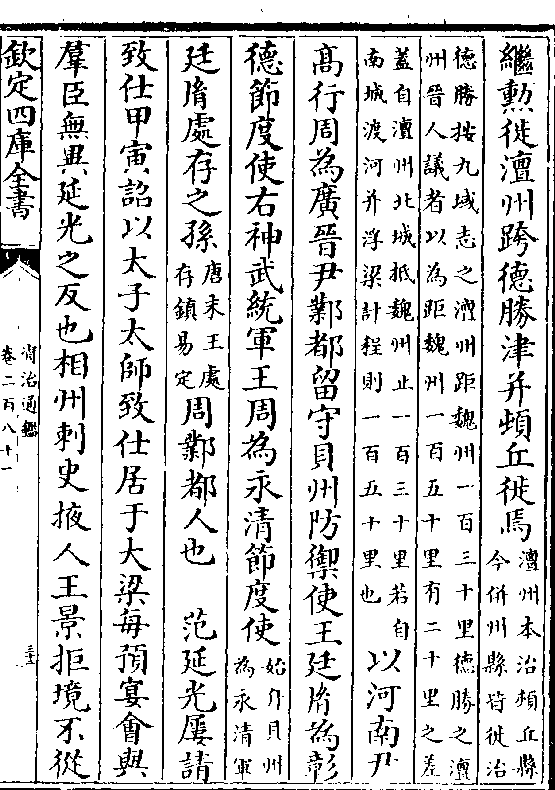 繼勲徙澶州跨德勝津并頓丘徙焉澶州本治頓丘縣今併州縣皆徙治
德勝按九域志之澶州距魏州一百三十里德勝之澶州晉人議者以為距魏州一百五十里有二十里之差
蓋自澶州北城抵魏州止一百三十里若自南城渡河并浮梁計程則一百五十里也以河南尹
髙行周為廣晉尹鄴都留守貝州防禦使王廷𦙍為彰
德節度使右神武統軍王周為永清節度使始升貝州為永清軍
廷𦙍處存之孫唐末王處存鎮易定周鄴都人也 范延光屢請
致仕甲寅詔以太子太師致仕居于大梁每預宴會與
羣臣無異延光之反也相州刺史掖人王景拒境不從
欽定四庫全書
資治通鑑
卷二百八十一